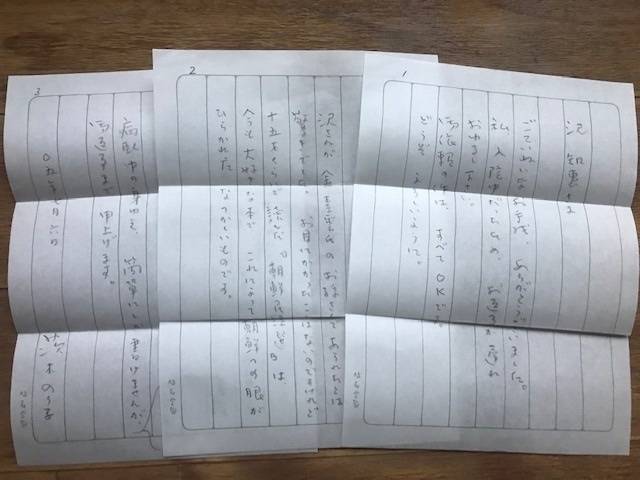 1
沢 知恵さま
ごていねいなお手紙、ありがとうございました。
私、入院中だったため、お返事が遅れ
おゆるし下さい。
御依頼の件は、すべてOKです。
どうぞ よろしいように。
2
沢さんが 金素雲氏の お孫さんで あられたとは
驚きでした。お目にかかったことはないのですけれど
十五才くらいで読んだ『朝鮮民謡選』は
今も大好きな本で、これによって朝鮮への眼が
ひらかれた なつかしいものです。
3
病臥中の身ゆえ、簡単にしか書けませんが、
御返事まで 申上げます。
茨木のり子